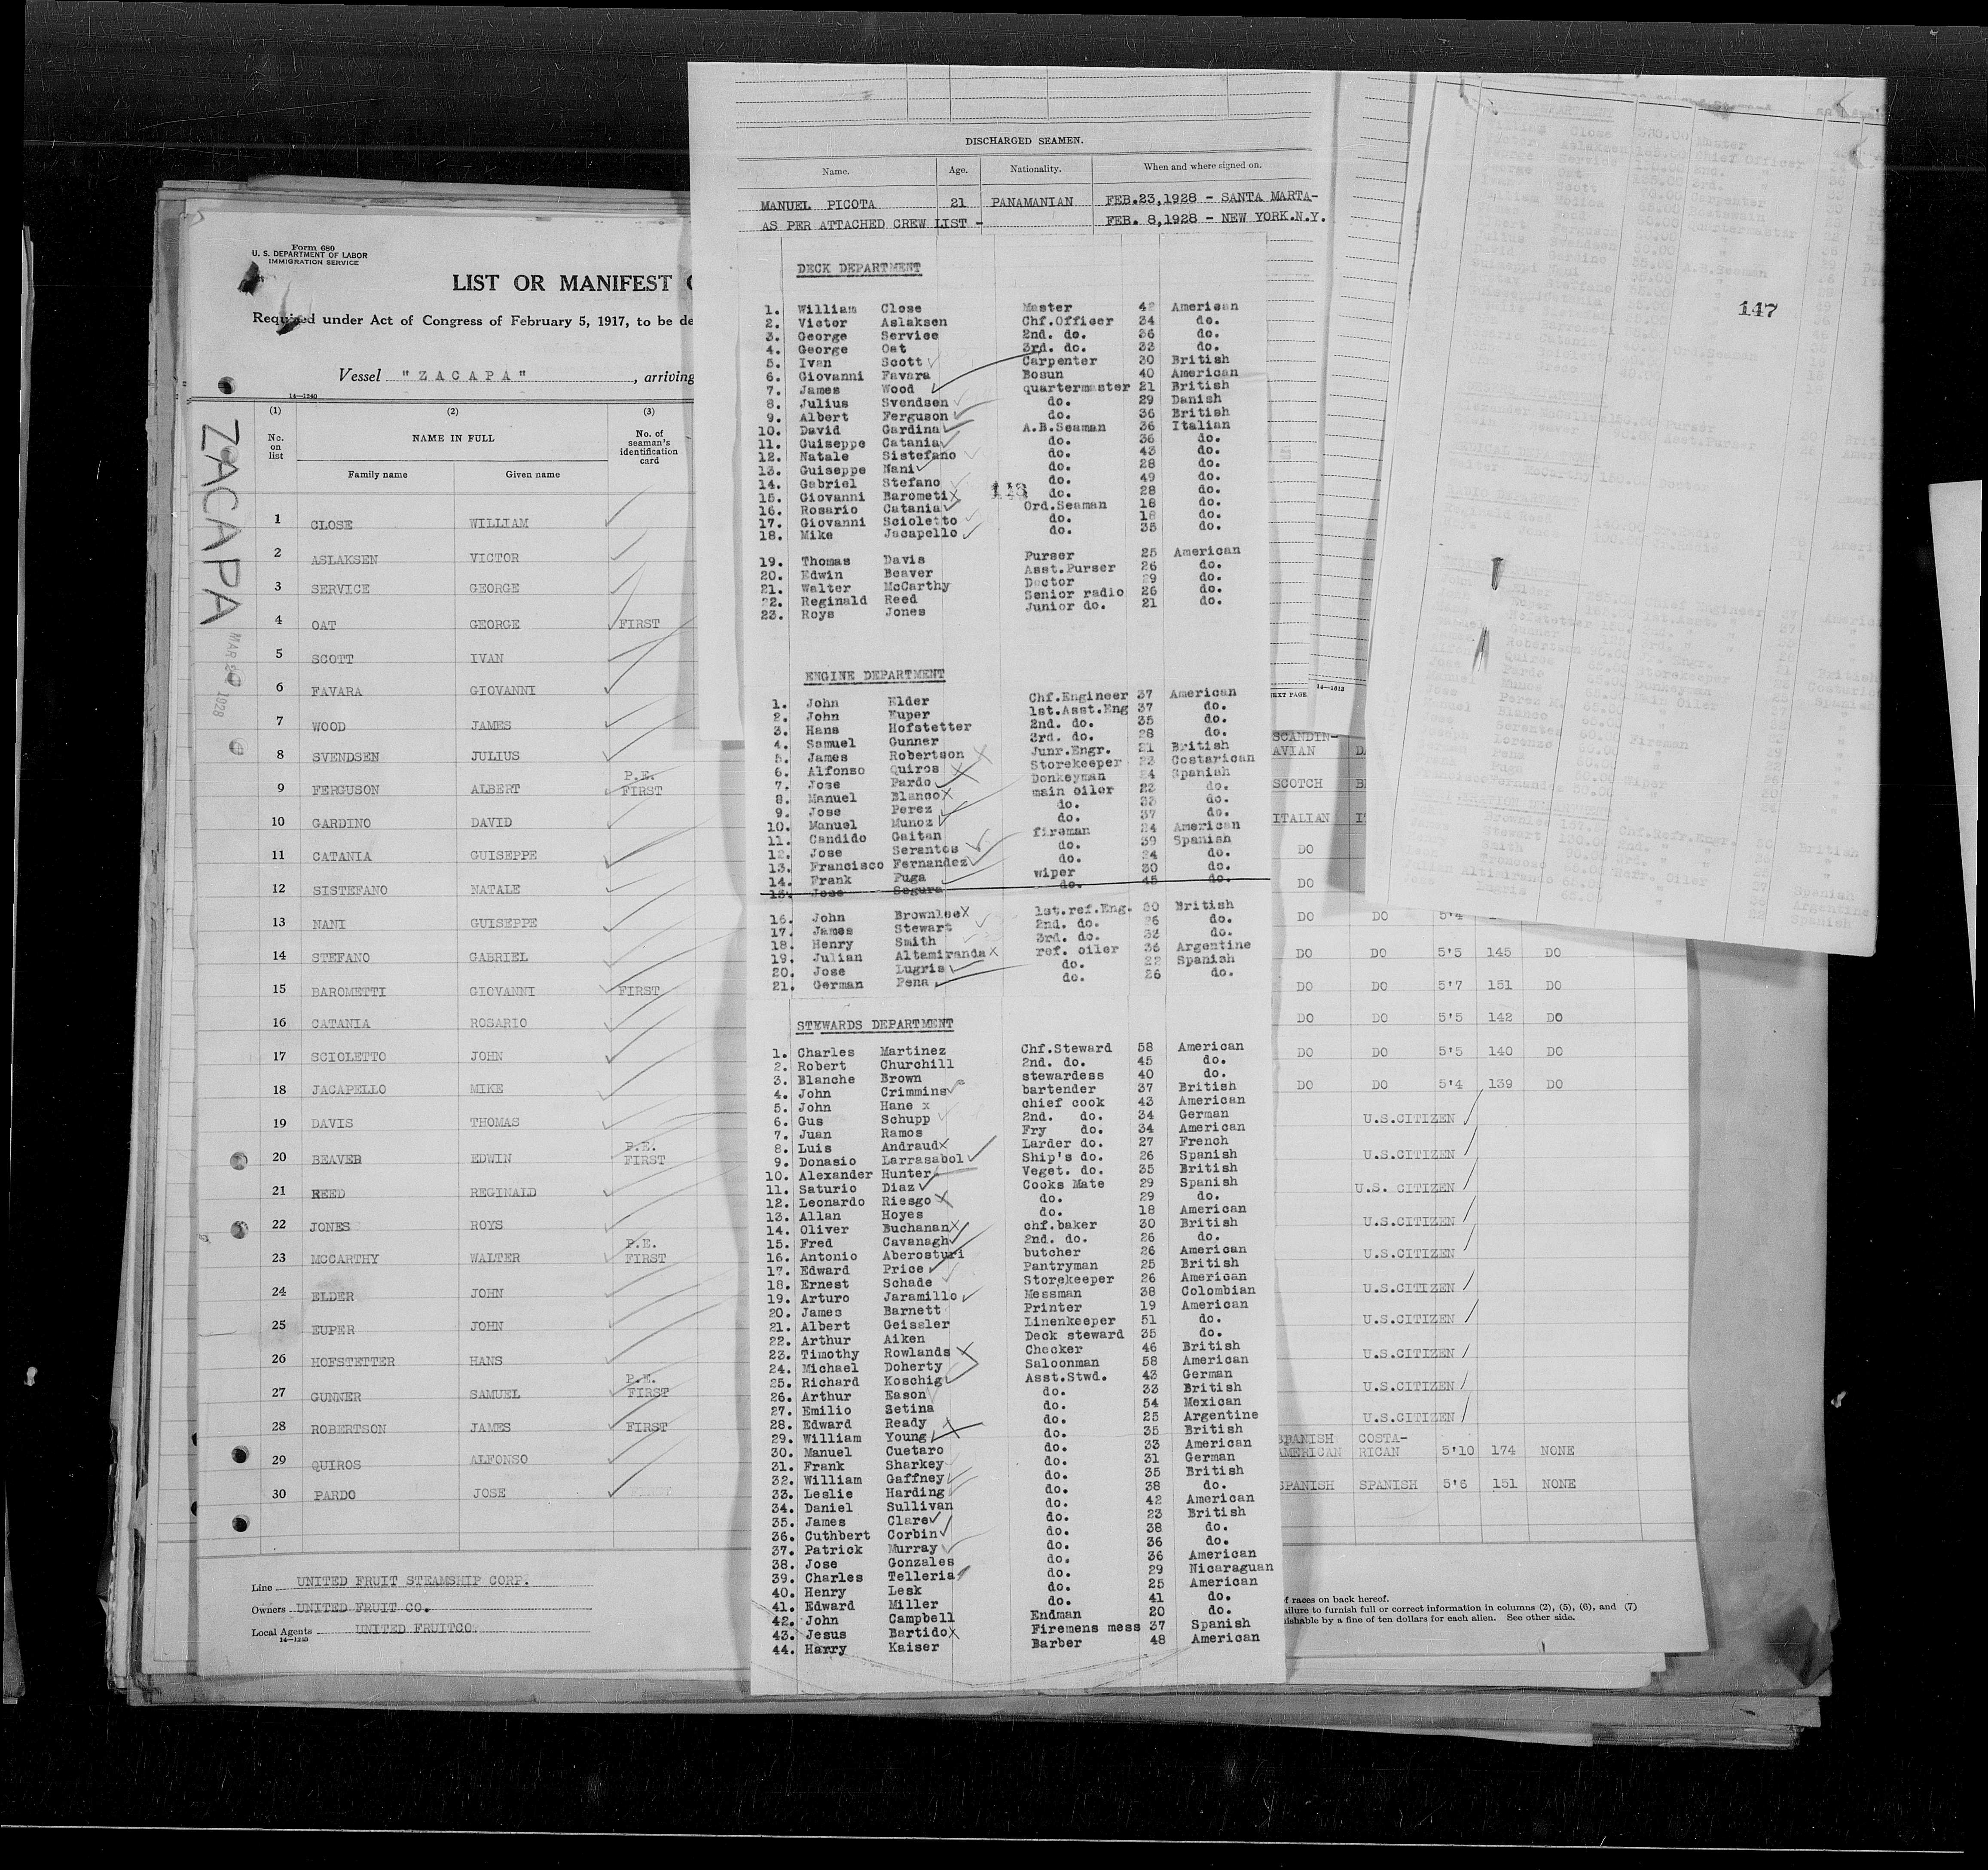 Form 680
U. S. DEPARTMENT OF LABOR
IMMIGRATION SERVICE
LIST OR MANIFEST
Required under Act of Congress of February 5, 1917, to be de
Vessel "ZACAPA", arriving
14—1240
ZACAPA
MAR 1928
(1) (2) (3)
No. on list
NAME IN FULL
No. of seaman's identification card
Family name Given name
1 CLOSE WILLIAM
2 ASLAKSEN VICTOR
3 SERVICE GEORGE
4 OAT GEORGE FIRST
5 SCOTT IVAN
6 FAVARA GIOVANNI
7 WOOD JAMES
8 SVENDSEN JULIUS
9 FERGUSON ALBERT P.E. FIRST
10 GARDINO DAVID
11 CATANIA GUISEPPE
12 SISTEFANO NATALE
13 NANI GUISEPPE
14 STEFANO GABRIEL
15 BAROMETTI GIOVANNI FIRST
16 CATANIA ROSARIO
17 SCIOLETTO JOHN
18 JACAPELLO MIKE
19 DAVIS THOMAS
20 BEAVER EDWIN P.E. FIRST
21 REED REGINALD
22 JONES ROYS
23 MCCARTHY WALTER P.E. FIRST
24 ELDER JOHN
25 EUPER JOHN
26 HOFSTETTER HANS
27 GUNNER SAMUEL P.E. FIRST
28 ROBERTSON JAMES FIRST
29 QUIROS ALFONSO
30 PARDO JOSE
Line UNITED FRUIT STEAMSHIP CORP.
Owners UNITED FRUIT CO.
Local Agents UNITED FRUITCO.
14—1240
DISCHARGED SEAMEN.
Name. Age. Nationality. When and where signed on.
MANUEL PICOTA 21 PANAMANIAN FEB.23,1928 - SANTA MARTA-
AS PER ATTACHED CREW LIST - FEB. 8,1928 - NEW YORK.N.Y.
DECK DEPARTMENT
1. William Close Master 42 American
2. Victor Aslaksen Chf.Officer 34 do.
3. George Service 2nd. do. 36 do.
4. George Oat 3rd. do. 33 do.
5. Ivan Scott Carpenter 30 British
6. Giovanni Favara Bosun 40 American
7. James Wood quartermaster 21 British
8. Julius Svendsen do. 29 Danish
9. Albert Ferguson do. 36 British
10. David Gardina A.B.Seaman 36 Italian
11. Guiseppe Catania do. 36 do.
12. Natale Sistefano do. 43 do.
13. Guiseppe Nani do. 28 do.
14. Gabriel Stefano do. 49 do.
15. Giovanni Barometi do. 28 do.
113
16. Rosario Catania Ord.Seaman 18 do.
17. Giovanni Scioletto do. 18 do.
18. Mike Jacapello do. 35 do.
19. Thomas Davis Purser 25 American
20. Edwin Beaver Asst.Purser 26 do.
21. Walter McCarthy Doctor 29 do.
22. Reginald Reed Senior radio 26 do.
23. Roys Jones Junior do. 21 do.
ENGINE DEPARTMENT
1. John Elder Chf.Engineer 37 American
2. John Euper 1st.Asst.Eng 37 do.
3. Hans Hofstetter 2nd. do. 35 do.
4. Samuel Gunner 3rd. do. 28 do.
5. James Robertson Junr.Engr. 21 British
6. Alfonso Quiros Storekeeper 23 Costarican
7. Jose Pardo Donkeyman 24 Spanish
8. Manuel Blanco main oiler 23 do.
9. Jose Perez do. 33 do.
10. Manuel Munoz do. 37 do.
11. Candido Gaitan fireman 24 American
12. Jose Serantos do. 39 Spanish
13. Francisco Fernandez do. 24 do.
14. Frank Puga wiper 30 do.
15. Jose Segura do. 45 do.
16. John Brownlee 1st.ref.Eng. 30 British
17. James Stewart 2nd. do. 26 do.
18. Henry Smith 3rd. do. 32 do.
19. Julian Altamiranda ref. oiler 36 Argentine
20. Jose Lugris do. 22 Spanish
21. German Pena do. 26 do.
STEWARDS DEPARTMENT
1. Charles Martinez Chf.Steward 58 American
2. Robert Churchill 2nd. do. 45 do.
3. Blanche Brown stewardess 40 do.
4. John Crimmins bartender 37 British
5. John Hane chief cook 43 American
6. Gus Schupp 2nd. do. 34 German
7. Juan Ramos Fry do. 34 American
8. Luis Andraud Larder do. 27 French
9. Donasio Larrasabol Ship's do. 26 Spanish
10. Alexander Hunter Veget. do. 35 British
11. Saturio Diaz Cooks Mate 29 Spanish
12. Leonardo Riesgo do. 29 do.
13. Allan Hoyes do. 18 American
14. Oliver Buchanan chf.baker 30 British
15. Fred Cavanagh 2nd. do. 26 do.
16. Antonio Aberosturi butcher 26 American
17. Edward Price Pantryman 25 British
18. Ernest Schade Storekeeper 26 American
19. Arturo Jaramillo Messman 38 Colombian
20. James Barnett Printer 19 American
21. Albert Geissler Linenkeeper 51 do.
22. Arthur Aiken Deck steward 35 do.
23. Timothy Rowlands Checker 46 British
24. Michael Doherty Saloonman 58 American
25. Richard Koschig Asst.Stwd. 43 German
26. Arthur Eason do. 33 British
27. Emilio Zetina do. 54 Mexican
28. Edward Ready do. 25 Argentine
29. William Young do. 35 British
30. Manuel Cuetaro do. 33 American
31. Frank Sharkey do. 31 German
32. William Gaffney do. 35 British
33. Leslie Harding do. 38 do.
34. Daniel Sullivan do. 42 American
35. James Clare do. 23 British
36. Cuthbert Corbin do. 38 do.
37. Patrick Murray do. 36 do.
38. Jose Gonzales do. 36 American
39. Charles Telleria do. 29 Nicaraguan
40. Henry Lesk do. 25 American
41. Edward Miller do. 41 do.
42. John Campbell Endman 20 do.
43. Jesus Bartido Firemens mess 37 Spanish
44. Harry Kaiser Barber 48 American
147
EXT PAGE 14—1613
SCANDIN-
AVIAN
SCOTCH
ITALIAN
DO
DO
DO DO 5'4
DO DO 5'5 145 DO
DO DO 5'7 151 DO
DO DO 5'5 142 DO
DO DO 5'5 140 DO
DO DO 5'4 139 DO
U.S.CITIZEN
U.S.CITIZEN
U.S. CITIZEN
U.S.CITIZEN
U.S.CITIZEN
U.S.CITIZEN
U.S.CITIZEN
U.S.CITIZEN
U.S.CITIZEN
U.S.CITIZEN
SPANISH AMERICAN COSTA-RICAN 5'10 174 NONE
SPANISH SPANISH 5'6 151 NONE
f races on back hereof.
ailure to furnish full or correct information in columns (2), (5), (6), and (7)
ishable by a fine of ten dollars for each alien. See other side.